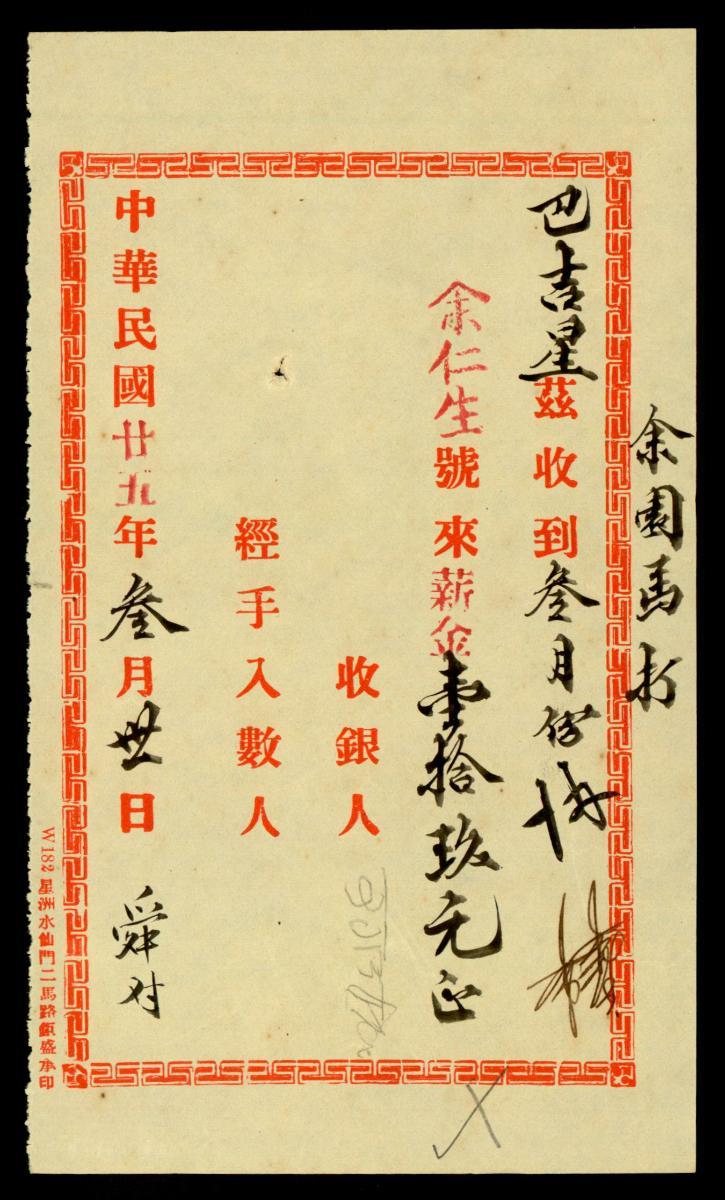 余園馬打
巴吉星茲收到叁月份
余仁生號來薪金壹拾玖元正
收銀人
經手入數人
中華民國廿五年叁月卅日 舜付
W182 星洲水仙門二馬路 盛承印